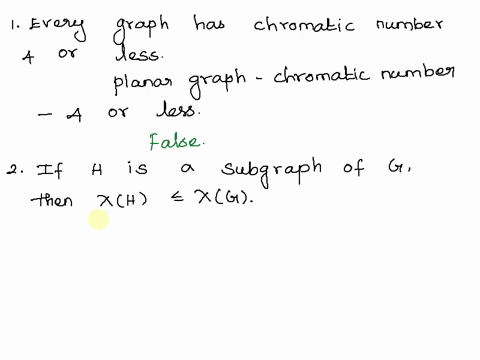 1. Every graph has chromatic number
4 or less.
planar graph - chromatic number
- 4 or less.
False.
2. If H is a subgraph of G,
then χ(H) ≤ χ(G).